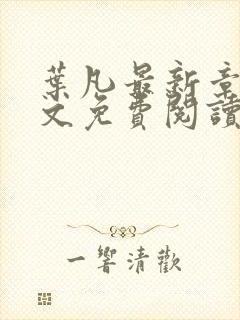 葉凡最新章
文免費閱讀
一響清歡